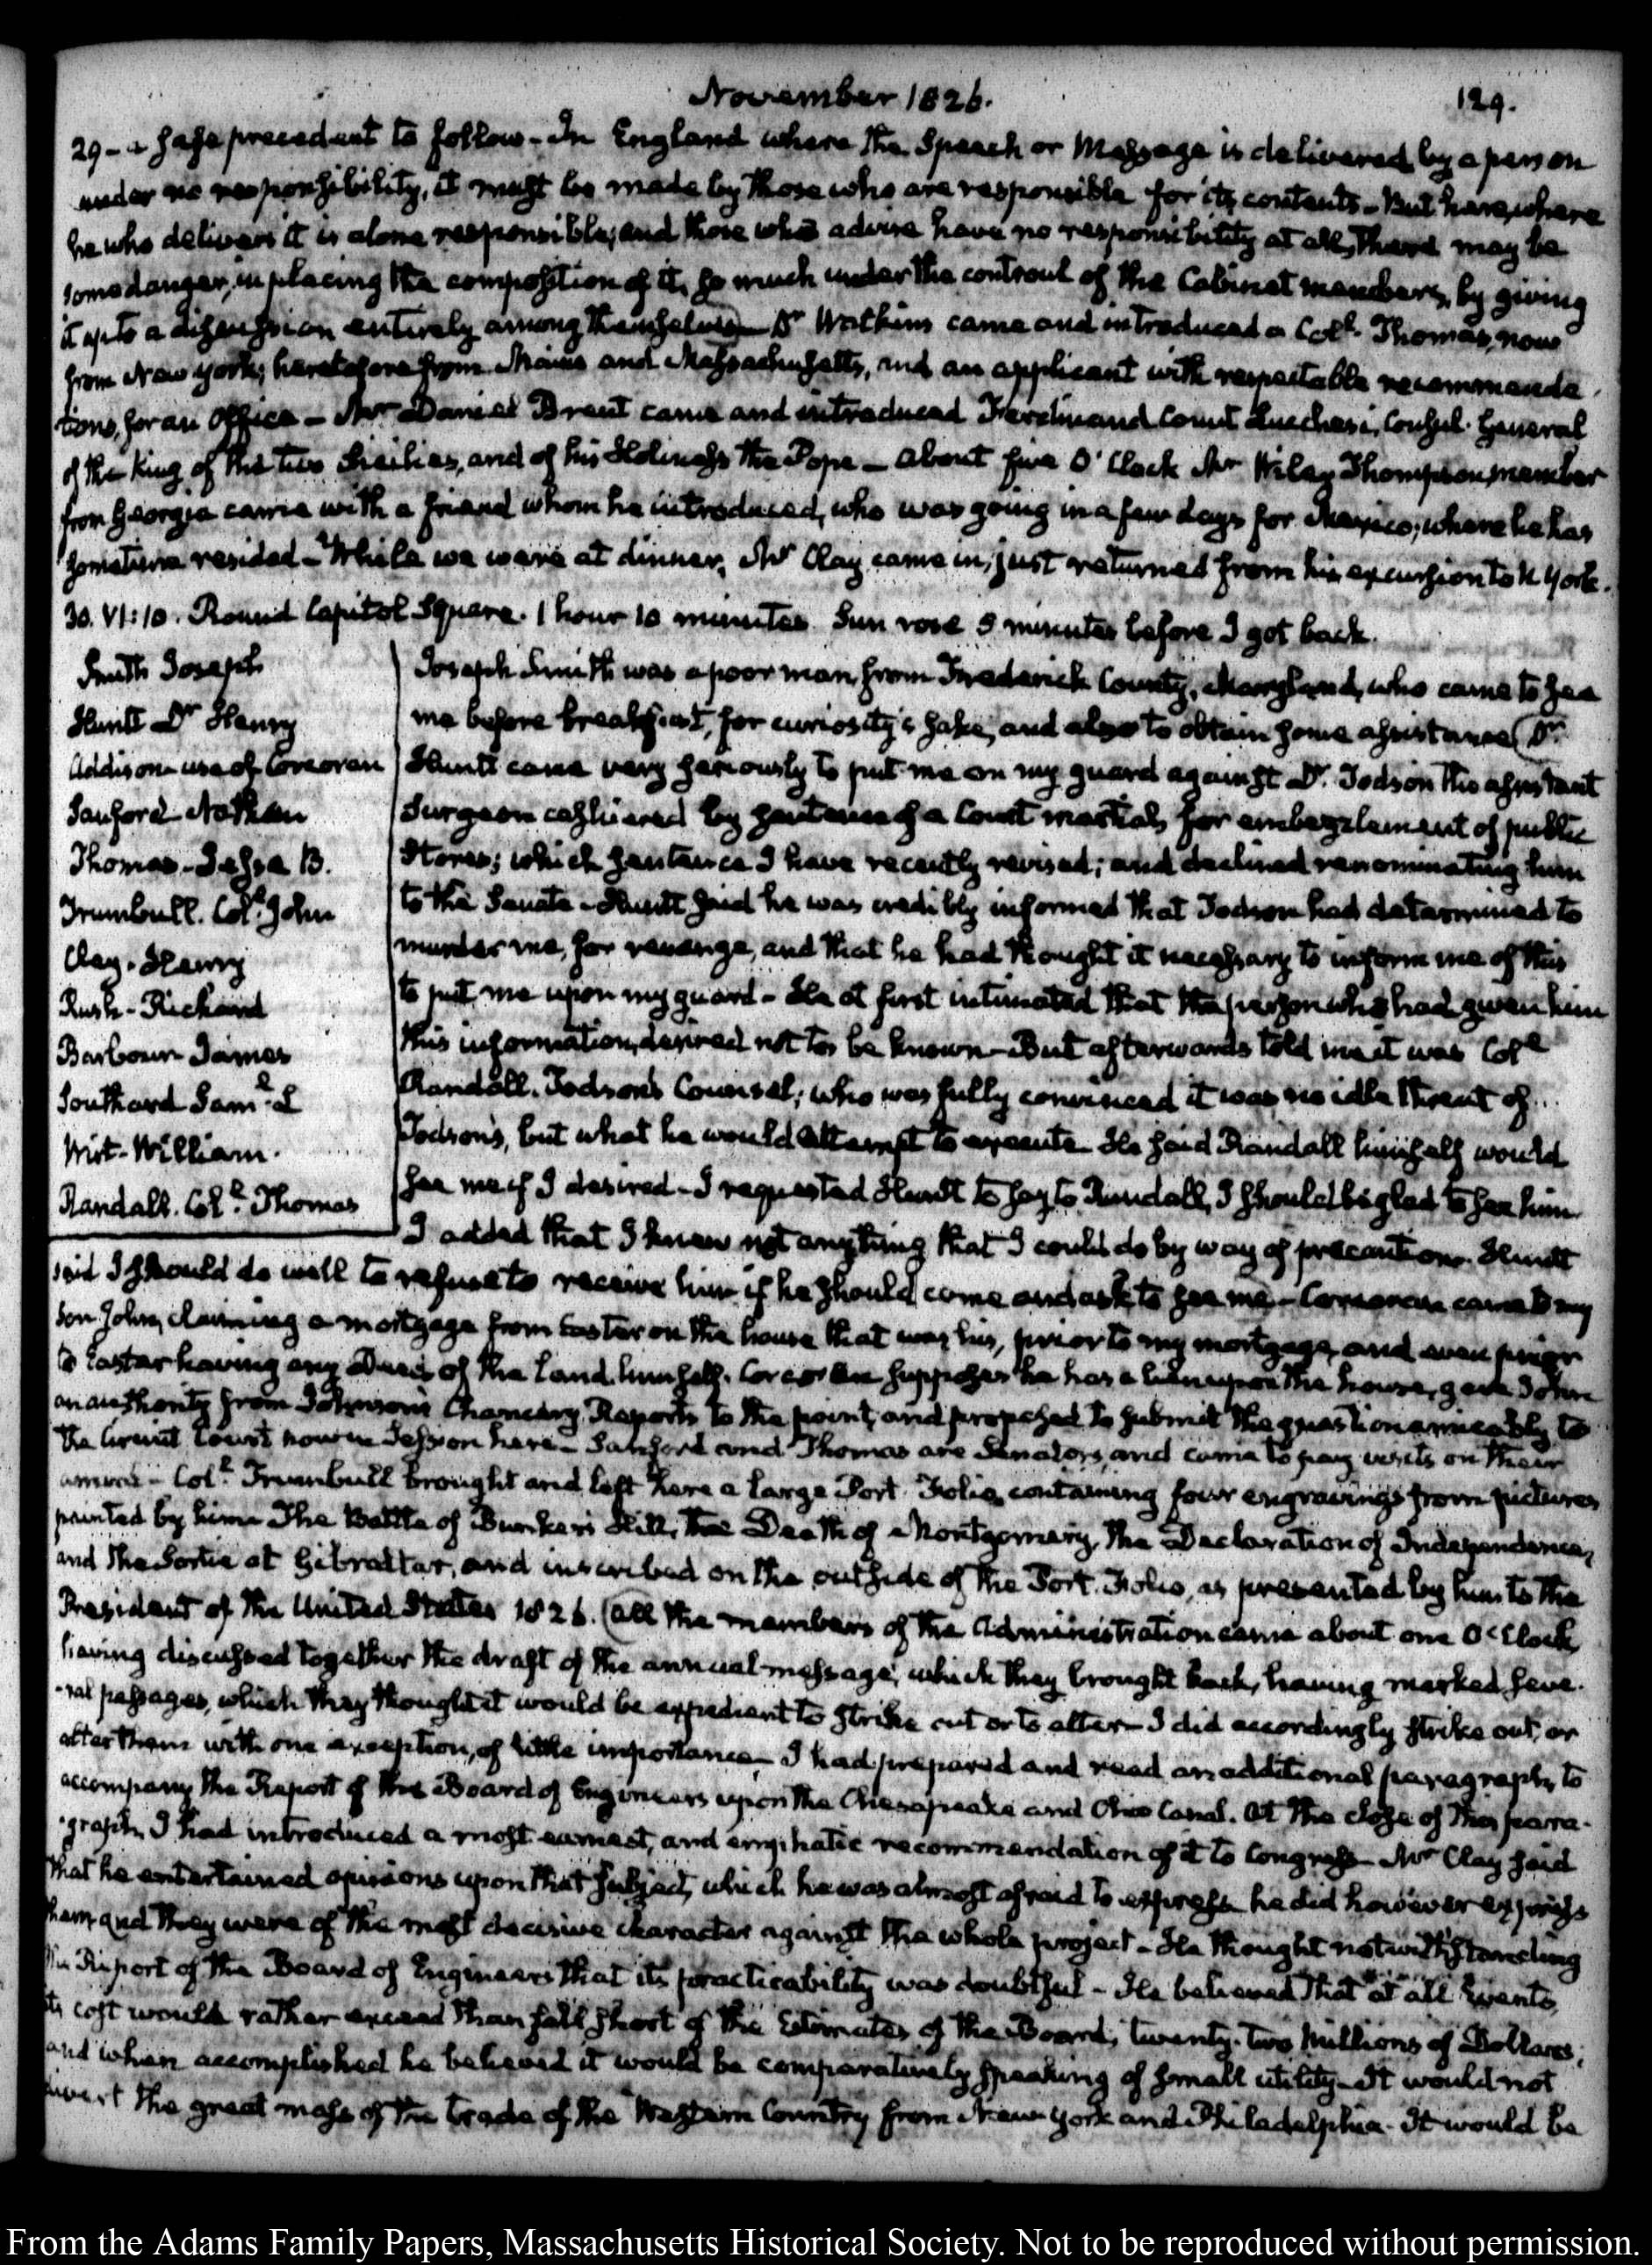 November 1826.
129.
29 - a safe precedent to follow - In England where the Speech or Message is delivered by a person
under no responsibility, it must be made by those who are responsible for its contents - But here, where
he who delivers it is alone responsible, and those who advise have no responsibility at all, there may be
some danger, in placing the composition of it, so much under the controul of the Cabinet members, by giving
it up to a discussion entirely among themselves - Dr Watkins came and introduced a Coll. Thomas, now
from New York; heretofore from Maine and Massachusetts, and an applicant with respectable recommenda-
tions, for an Office - Mr Daniel Brent came and introduced Ferdinand Count Lucchesi, Consul-General
of the King of the two Sicilies, and of his Holiness the Pope - About five O'Clock Mr Wiley Thompson, member
from Georgia came with a friend whom he introduced, who was going in a few days for Mexico; where he has
sometime resided - While we were at dinner, Mr Clay came in, just returned from his excursion to N York.
30. VI:10. Round Capitol Square. 1 hour 10 minutes. Sun rose 5 minutes before I got back.
Smith Joseph
Huntt Dr Henry
Addison use of Corcoran
Sanford Nathan
Thomas - Jesse B.
Trumbull. Coll. John
Clay. Henry
Rush - Richard
Barbour James
Southard Saml. L
Wirt - William.
Randall. Coll. Thomas
Joseph Smith was a poor man from Frederick County, Maryland, who came to see
me before breakfast, for curiosity's sake, and also to obtain some assistance (Dr
Huntt came very seriously to put me on my guard against Dr. Todson the assistant
Surgeon cashiered by sentence of a Court martial, for embezzlement of public
Stores; which sentence I have recently revised; and declined renominating him
to the Senate - Huntt said he was credibly informed that Todson had determined to
murder me, for revenge, and that he had thought it necessary to inform me of this
to put me upon my guard - He at first intimated that the person who had given him
this information, desired not to be known - But afterwards told me it was Coll
Randall. Todson's Counsel; who was fully convinced it was no idle threat of
Todson's, but what he would attempt to execute He said Randall himself would
see me if I desired - I requested Huntt to say to Randall, I should be glad to see him
I added that I knew not anything that I could do by way of precaution. Huntt
said I should do well to refuse to receive him if he should come and ask to see me - Corcoran came to my
son John, claiming a mortgage from Easter on the house that was his, prior to my mortgage, and even prior
to Easter having any Deed of the Land himself. Corcoran supposes he has a lien upon the house, gave John
an authority from Johnson's Chancery Reports to the point, and proposed to submit the question amicably to
the Circuit Court now in Session here - Sanford and Thomas are Senators, and came to pay visits on their
arrival - Coll. Trumbull brought and left here a large Port Folio, containing four engravings from pictures
painted by him The Battle of Bunker's Hill, the Death of Montgomery, the Declaration of Independence,
and the Sortie at Gibraltar, and inscribed on the outside of the Port. Folio, as presented by him to the
President of the United States 1826. (All the members of the Administration came about one O'Clock,
having discussed together the draft of the annual message, which they brought back, having marked seve-
-ral passages, which they thought it would be expedient to strike out or to alter - I did accordingly strike out, or
alter them with one exception, of little importance - I had prepared and read an additional paragraph, to
accompany the Report of the Board of Engineers upon the Chesapeake and Ohio Canal. At the close of this para-
-graph, I had introduced a most earnest, and emphatic recommendation of it to Congress - Mr Clay said
that he entertained opinions upon that subject, which he was almost afraid to express he did however express
them, and they were of the most decisive character against the whole project - He thought notwithstanding
the Report of the Board of Engineers that its practicability was doubtful - He believed that at all events,
its cost would rather exceed than fall short of the Estimates of the Board, twenty-two Millions of Dollars;
and when accomplished he believed it would be comparatively speaking of small utility - It would not
divert the great mass of the trade of the Western Country from New-York and Philadelphia. It would be
From the Adams Family Papers, Massachusetts Historical Society. Not to be reproduced without permission.